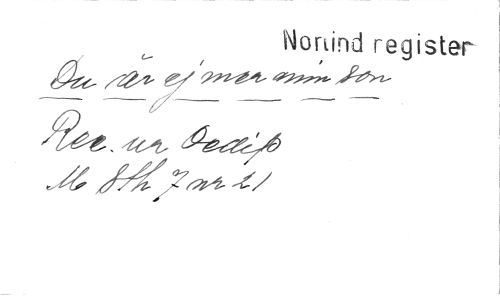 Norlind register
Du är ej mer min son
Rec. ur Oedip
M Sth 7 nr 21